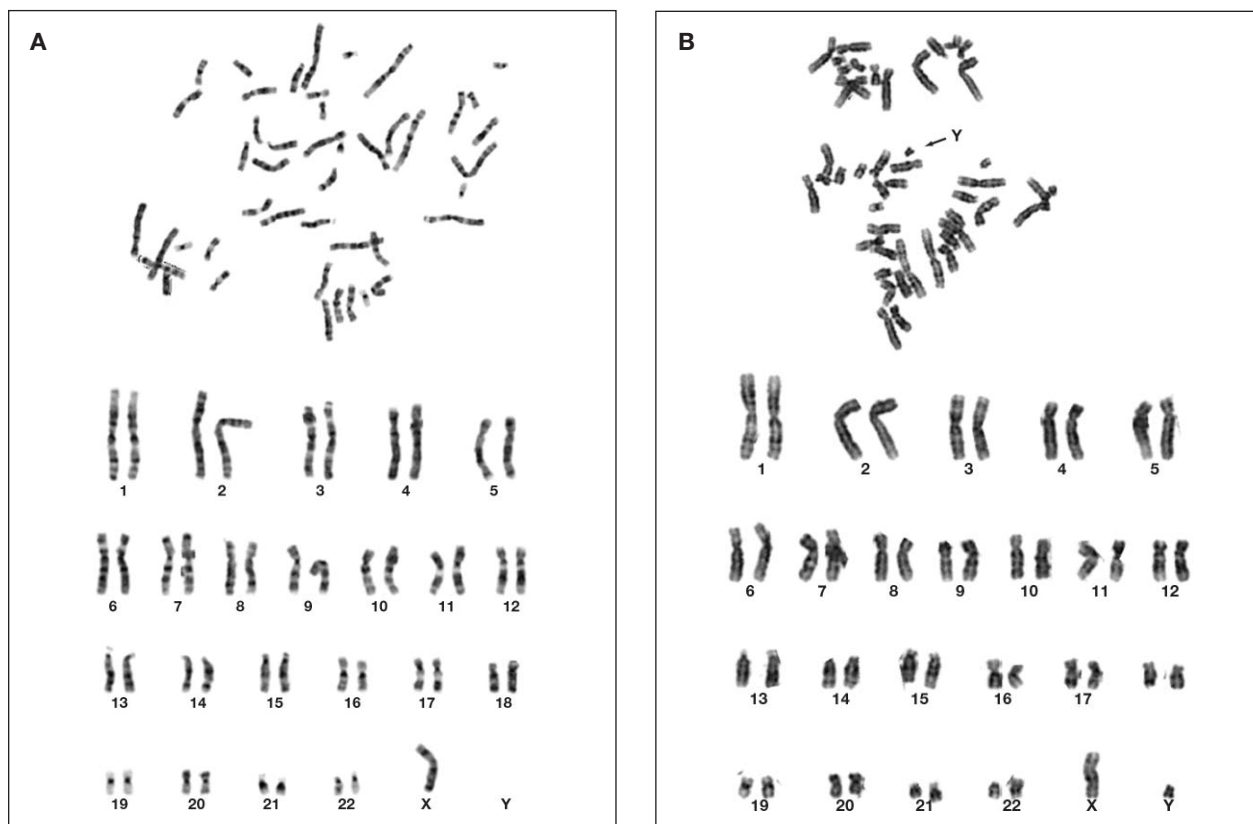 A
1 2 3 4 5
6 7 8 9 10 11 12
13 14 15 16 17 18
19 20 21 22 X Y
B
Y
1 2 3 4 5
6 7 8 9 10 11 12
13 14 15 16 17
19 20 21 22 X Y